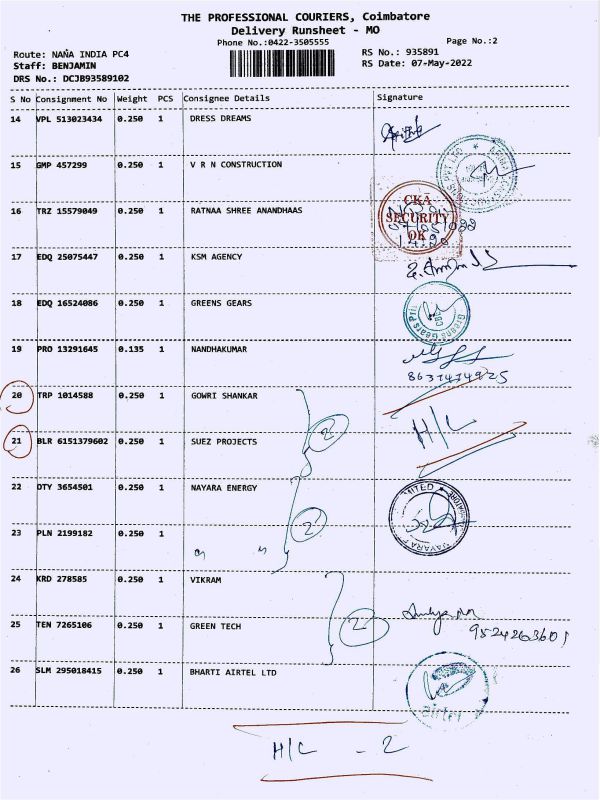 THE PROFESSIONAL COURIERS, Coimbatore
Delivery Runsheet - MO
Phone No.:0422-3505555
Page No.:2
Route: NANA INDIA PC4
RS No.: 935891
Staff: BENJAMIN
RS Date: 07-May-2022
DRS No.: DCJB93589102
S No Consignment No Weight PCS Consignee Details Signature
14 VPL 513023434 0.250 1 DRESS DREAMS
15 GMP 457299 0.250 1 V R N CONSTRUCTION
CKA
SECURITY
OK
16 TRZ 15579049 0.250 1 RATNAA SHREE ANANDHAAS
17 EDQ 25075447 0.250 1 KSM AGENCY
18 EDQ 16524086 0.250 1 GREENS GEARS
Greens Gears
CBE
19 PRO 13291645 0.135 1 NANDHAKUMAR
8637474925
20 TRP 1014588 0.250 1 GOWRI SHANKAR
2 H/C
21 BLR 6151379602 0.250 1 SUEZ PROJECTS
22 DTY 3654501 0.250 1 NAYARA ENERGY
2
23 PLN 2199182 0.250 1 " "
24 KRD 278585 0.250 1 VIKRAM
2
25 TEN 7265106 0.250 1 GREEN TECH
9524263601
26 SLM 295018415 0.250 1 BHARTI AIRTEL LTD
airtel
H/C - 2